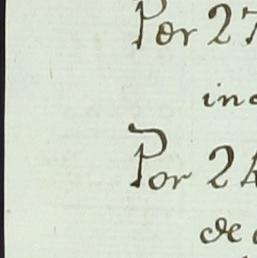 Per 27
in
Por 2
de